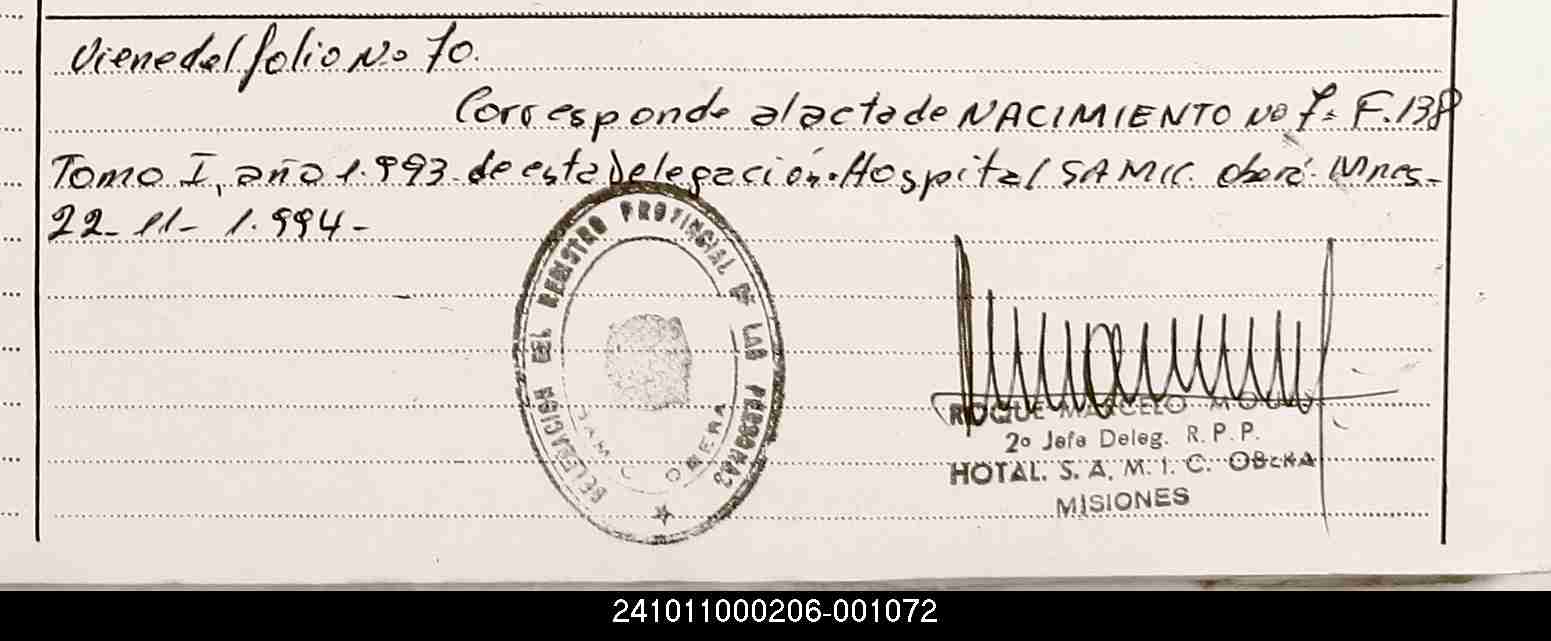 Viene del folio No 70.
Corresponde al acta de NACIMIENTO No 7- F.138
Tomo I, año 1.993 - de esta Delegación - Hospital SAMIC. Oberá - Mnes -
22 - 11 - 1.994 -
DELEGACION DEL REGISTRO PROVINCIAL DE LAS PERSONAS
SAMIC OBERA
ROQUE MARCELO
2º Jefe Deleg. R. P. P.
HOTAL. S. A. M. I. C. OBERA
MISIONES
241011000206-001072